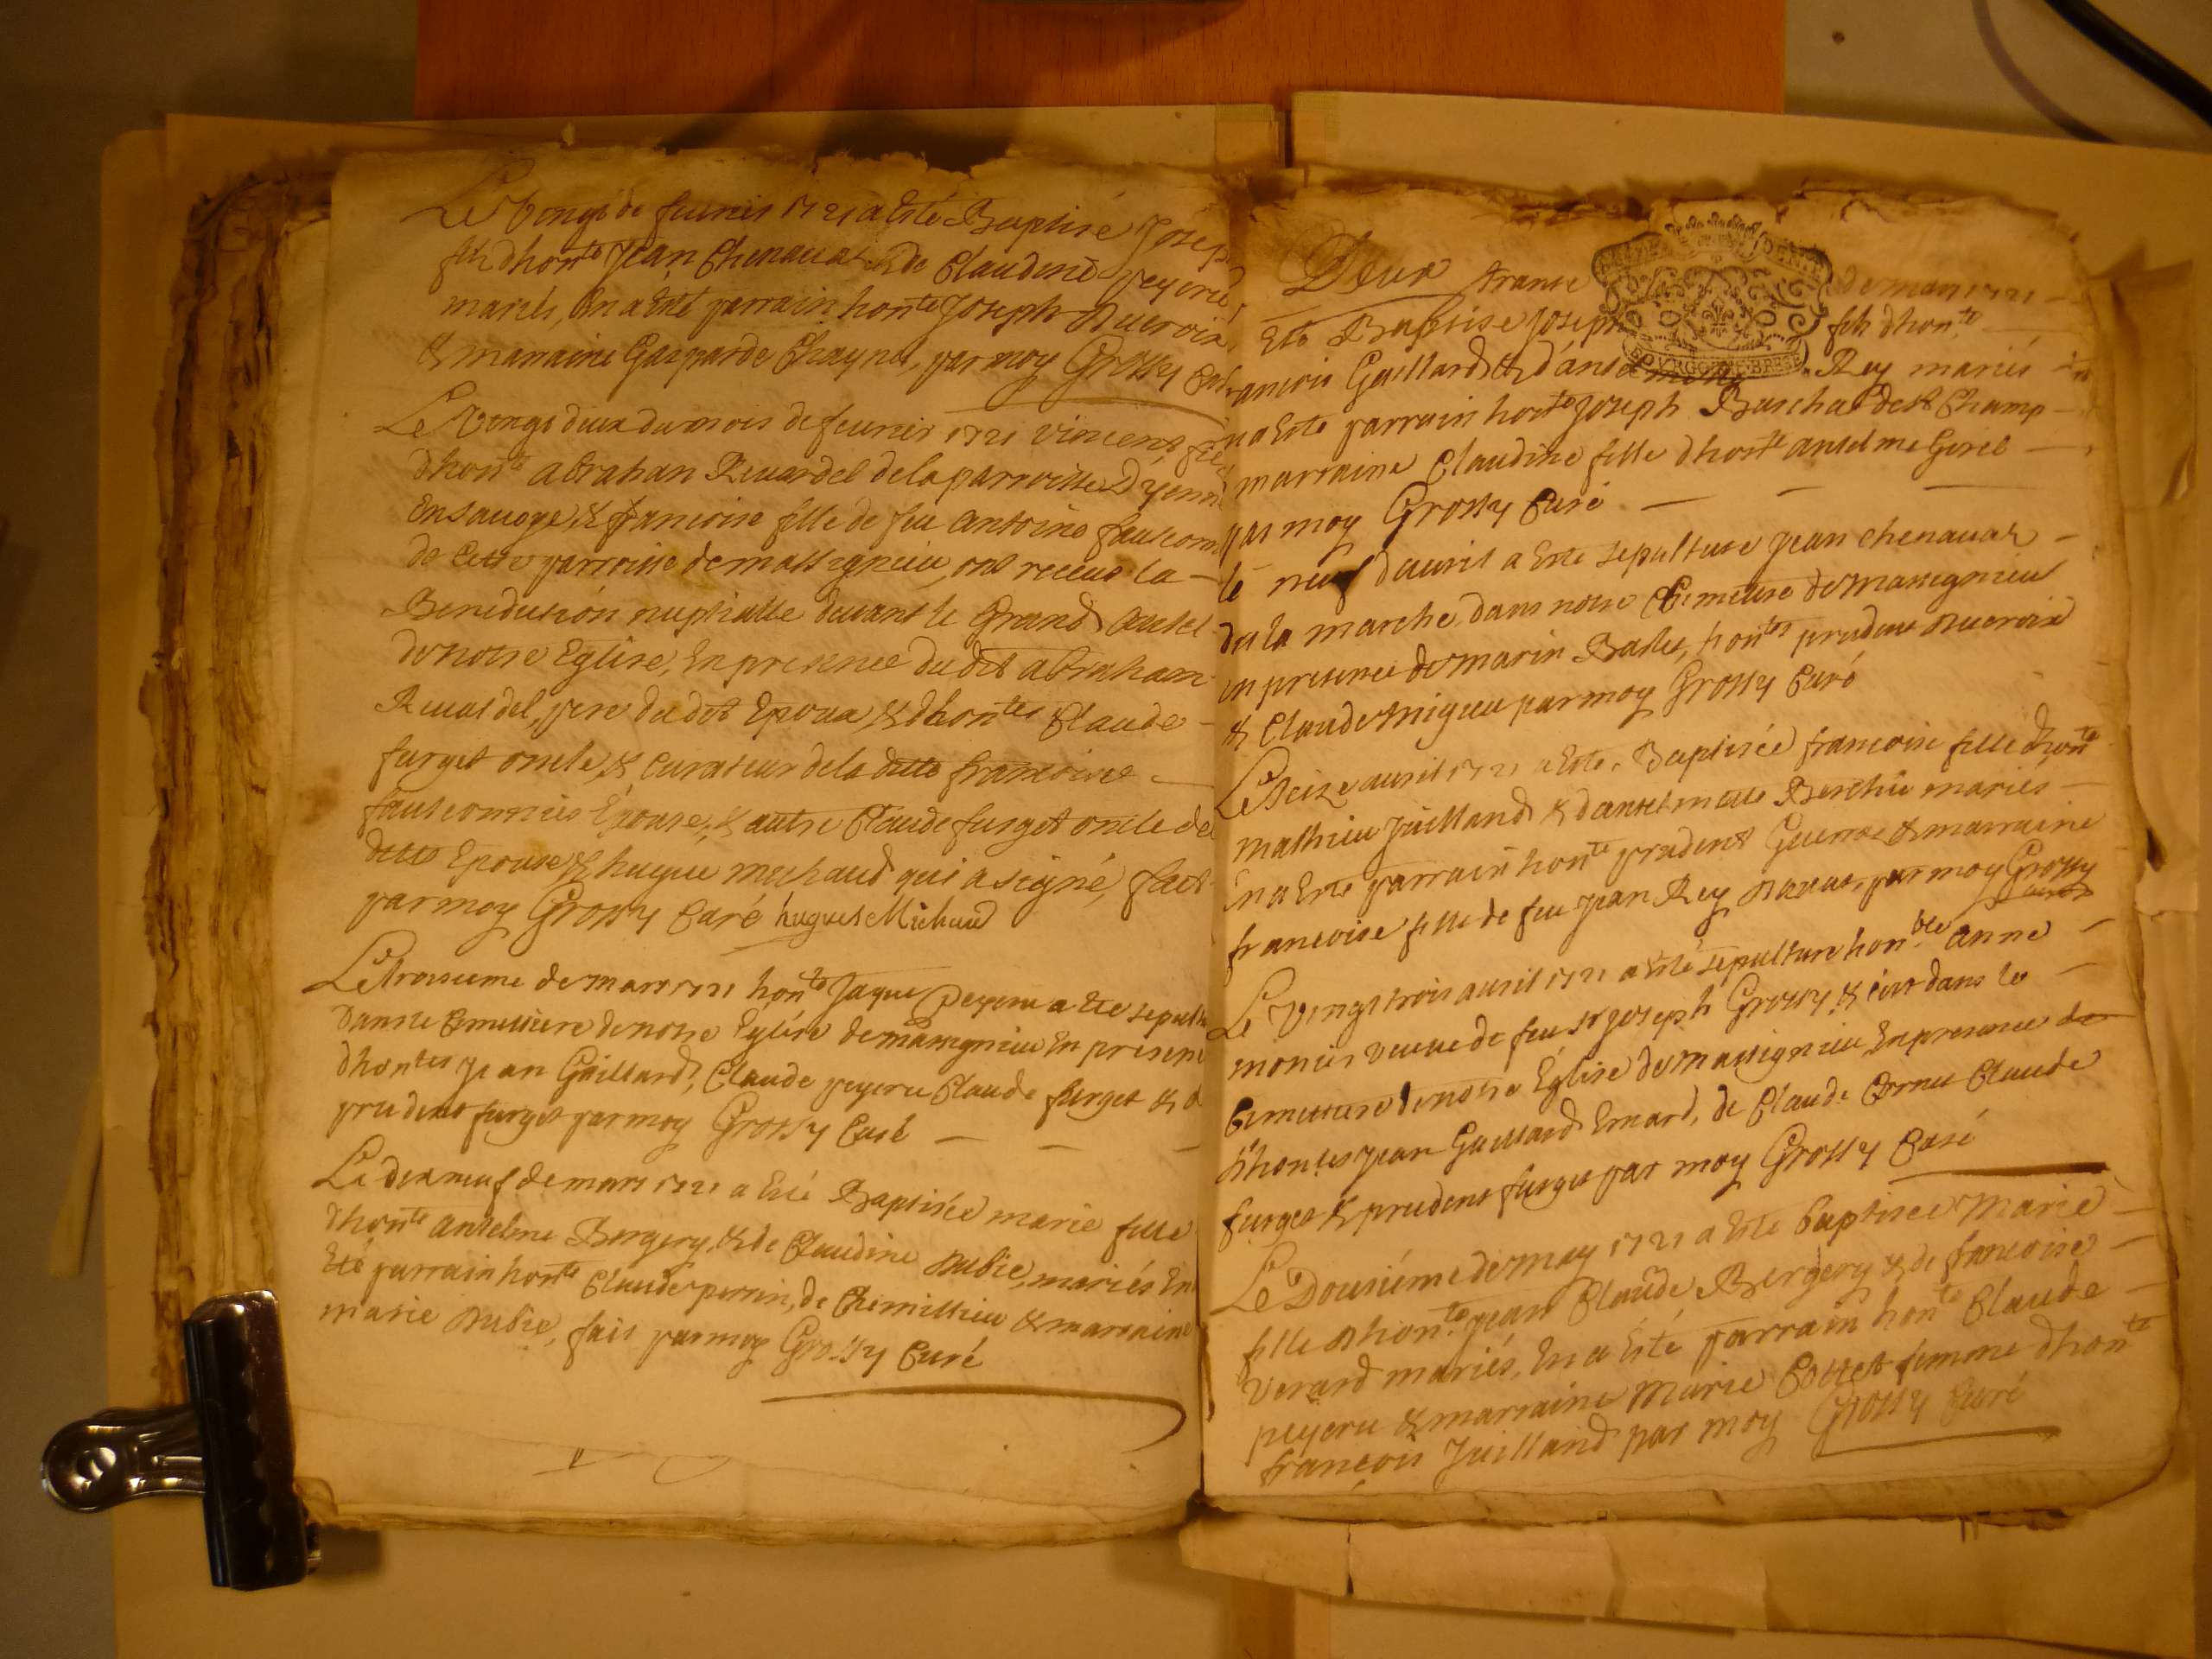 Le Vingt de feurier 1721 a Esté Baptisé Josep
fils dhonte Jean Chenauat & de Claudine peyerie
mariés, En a Esté parrain honte Joseph Ducroix,
& marraine Gasparde Chaynet, par moy Grossy Curé
Le Vingt deux du mois de feurier 1721 vincent fils
dhonte abrahan Reuardel de la parroisse D'yenne
En sauoye & francoise fille de feu antoine faulconn
de Cette parroisse de massignieu, ont receue la
Benediction nuptialle deuant le Grand Autel
de notre Eglise, En presence dudit abraham
Reuardel, pere dudit Epoux, & dhontes Claude
furget oncle & Curateur de la ditte francoise
faulconnier Epouse, & autre Claude furget oncle de
ditte Epouse & hugue michaud qui a signé, fait
par moy Grossy Curé hugues Michaud
Le troisieme de mars 1721 honte Jaque Peyerie a Eté sepult
dans le Cimetiere de notre Eglise de massignieu En presenc
dhontes Jean Gaillard, Claude peyerie Claude furget & d
prudent furget par moy Grossy Curé
Le dixneuf de mars 1721 a Esté Baptisée marie fille
dhonte antelme Bergery, & de Claudine Dubie, mariés En
Eté parrain honte Claude perrin, de Chemillieu & marraine
marie Dubie, fait par moy Grossy Curé
Deux trante de mars 1721
Eté Baptise Joseph fils dhonte
ancois Gaillard & d'antelmette Rey mariés
n a Esté parrain honte Joseph Buscha de St Champ
marraine Claudine fille dhonte antelme Girel
par moy Grossy Curé
le neuf d'auril a Esté sepulture Jean Chenauat
de la marche, dans notre Cimetiere de massignieu
en presence de marin Ballet, hontes prudent Ducroix
& Claude Mignieu par moy Grossy Curé
Le Seize auril 1721 a Esté Baptisée francoise fille dhonte
mathieu Juilland & d'antelmette Berthie mariés
En a Esté parrain honte prudent Guerre & marraine
francoise fille de feu Jean Rey Dauat, par moy Grossy
Curé
Le Vingt trois auril 1721 a Esté sepulture honble anne
monier veuue de feu Sr Joseph Grossy & c'est dans le
Cimetiere de notre Eglise de massignieu, En presence de
d'hontes Jean Gaillard Emard, de Claude Cornu Claude
furget & prudent furget par moy Grossy Curé
Le Dousiéme de may 1721 a Esté baptisée Marie
fille Dhonte Jean Claude Bergery & de francoise
Verard mariés, En a Esté parrain honte Claude
peyerie & marraine Marie Collet femme dhonte
françois Juilland par moy Grossy Curé